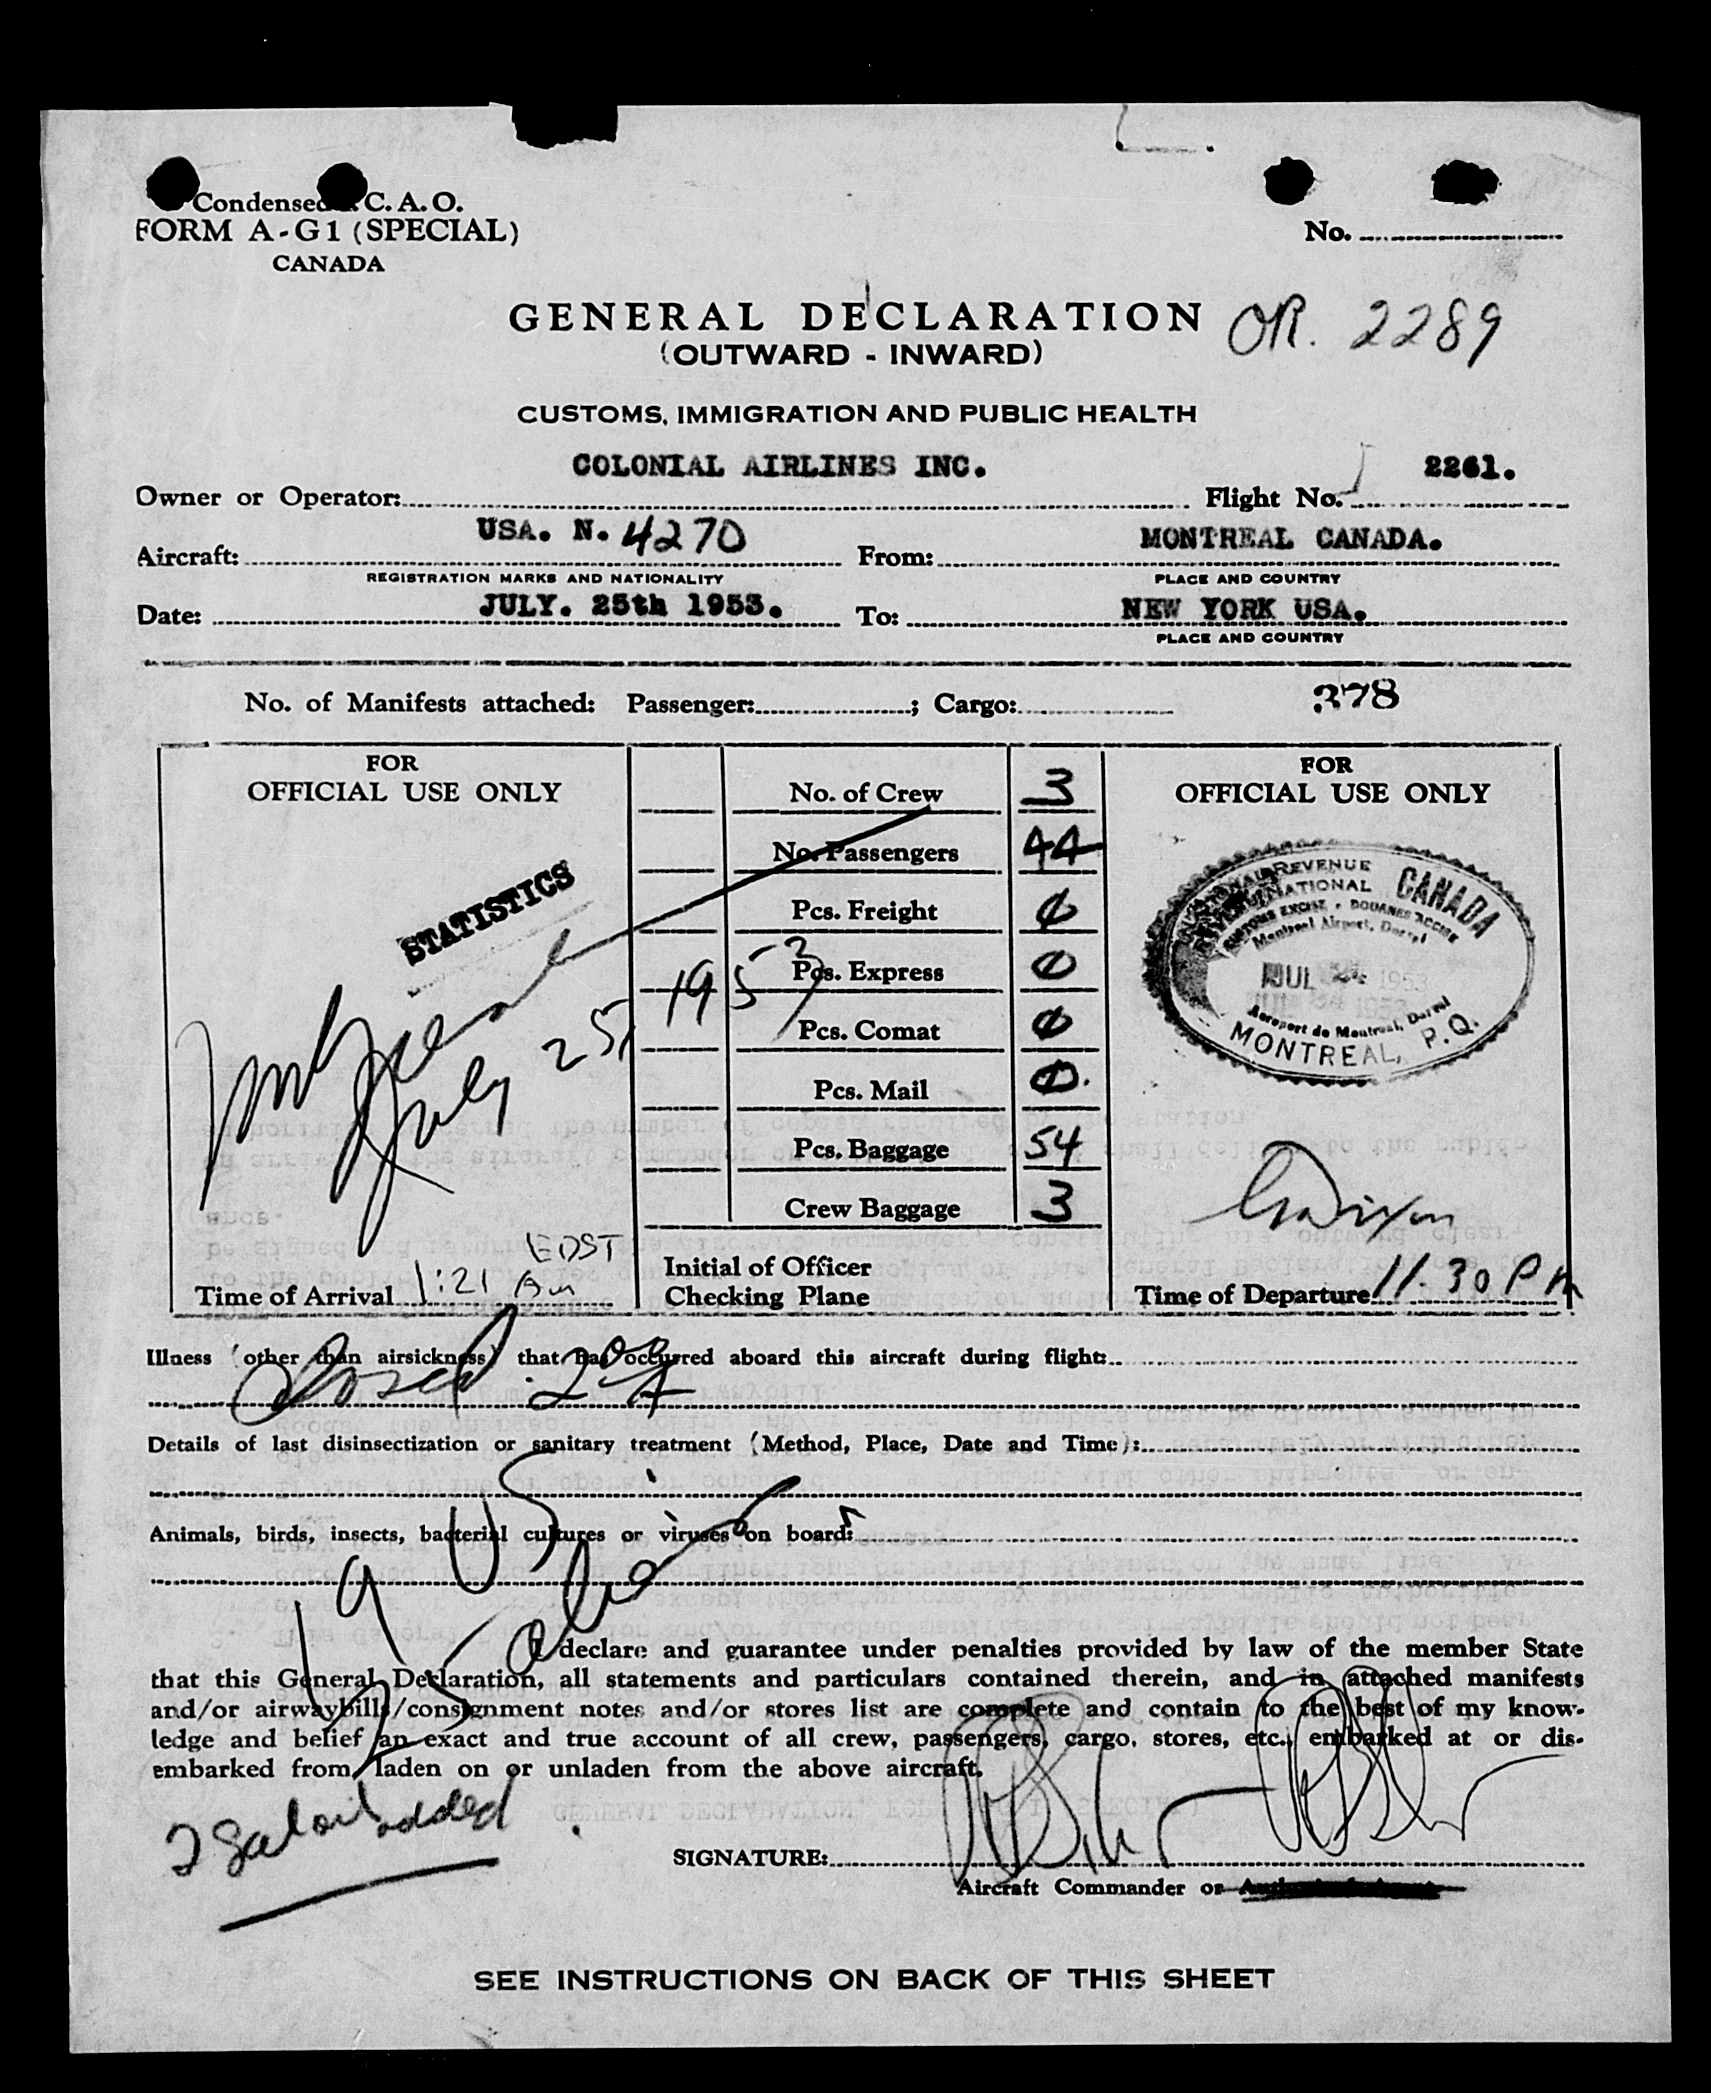 Condensed C. A. O.
FORM A-G1 (SPECIAL)
CANADA
No.
GENERAL DECLARATION
OR. 2289
(OUTWARD - INWARD)
CUSTOMS, IMMIGRATION AND PUBLIC HEALTH
COLONIAL AIRLINES INC. 2261.
Owner or Operator: Flight No.
USA. N. 4270 MONTREAL CANADA.
Aircraft: From:
REGISTRATION MARKS AND NATIONALITY PLACE AND COUNTRY
JULY. 25th 1953. NEW YORK USA.
Date: To:
PLACE AND COUNTRY
No. of Manifests attached: Passenger: ; Cargo: 378
FOR
OFFICIAL USE ONLY
STATISTICS
July 25, 1953
EDST
Time of Arrival 1:21 Am
No. of Crew 3
No. Passengers 44
Pcs. Freight 0
Pcs. Express 0
Pcs. Comat 0
Pcs. Mail 0.
Pcs. Baggage 54
Crew Baggage 3
Initial of Officer
Checking Plane
FOR
OFFICIAL USE ONLY
REVENUE
NATIONAL
CANADA
CUSTOMS EXCISE - DOUANES ACCISE
Montreal Airport, Dorval
JUL 1953
Aeroport de Montreal, Dorval
MONTREAL, P.Q.
Time of Departure 11.30 PM
Illness (other than airsickness) that has occurred aboard this aircraft during flight:
Closed
Details of last disinsectization or sanitary treatment (Method, Place, Date and Time):
Animals, birds, insects, bacterial cultures or viruses on board:
19 US
I declare and guarantee under penalties provided by law of the member State
that this General Declaration, all statements and particulars contained therein, and in attached manifests
and/or airwaybills/consignment notes and/or stores list are complete and contain to the best of my know-
ledge and belief an exact and true account of all crew, passengers, cargo, stores, etc., embarked at or dis-
embarked from, laden on or unladen from the above aircraft.
2 gal oil added
SIGNATURE:
Aircraft Commander or
SEE INSTRUCTIONS ON BACK OF THIS SHEET